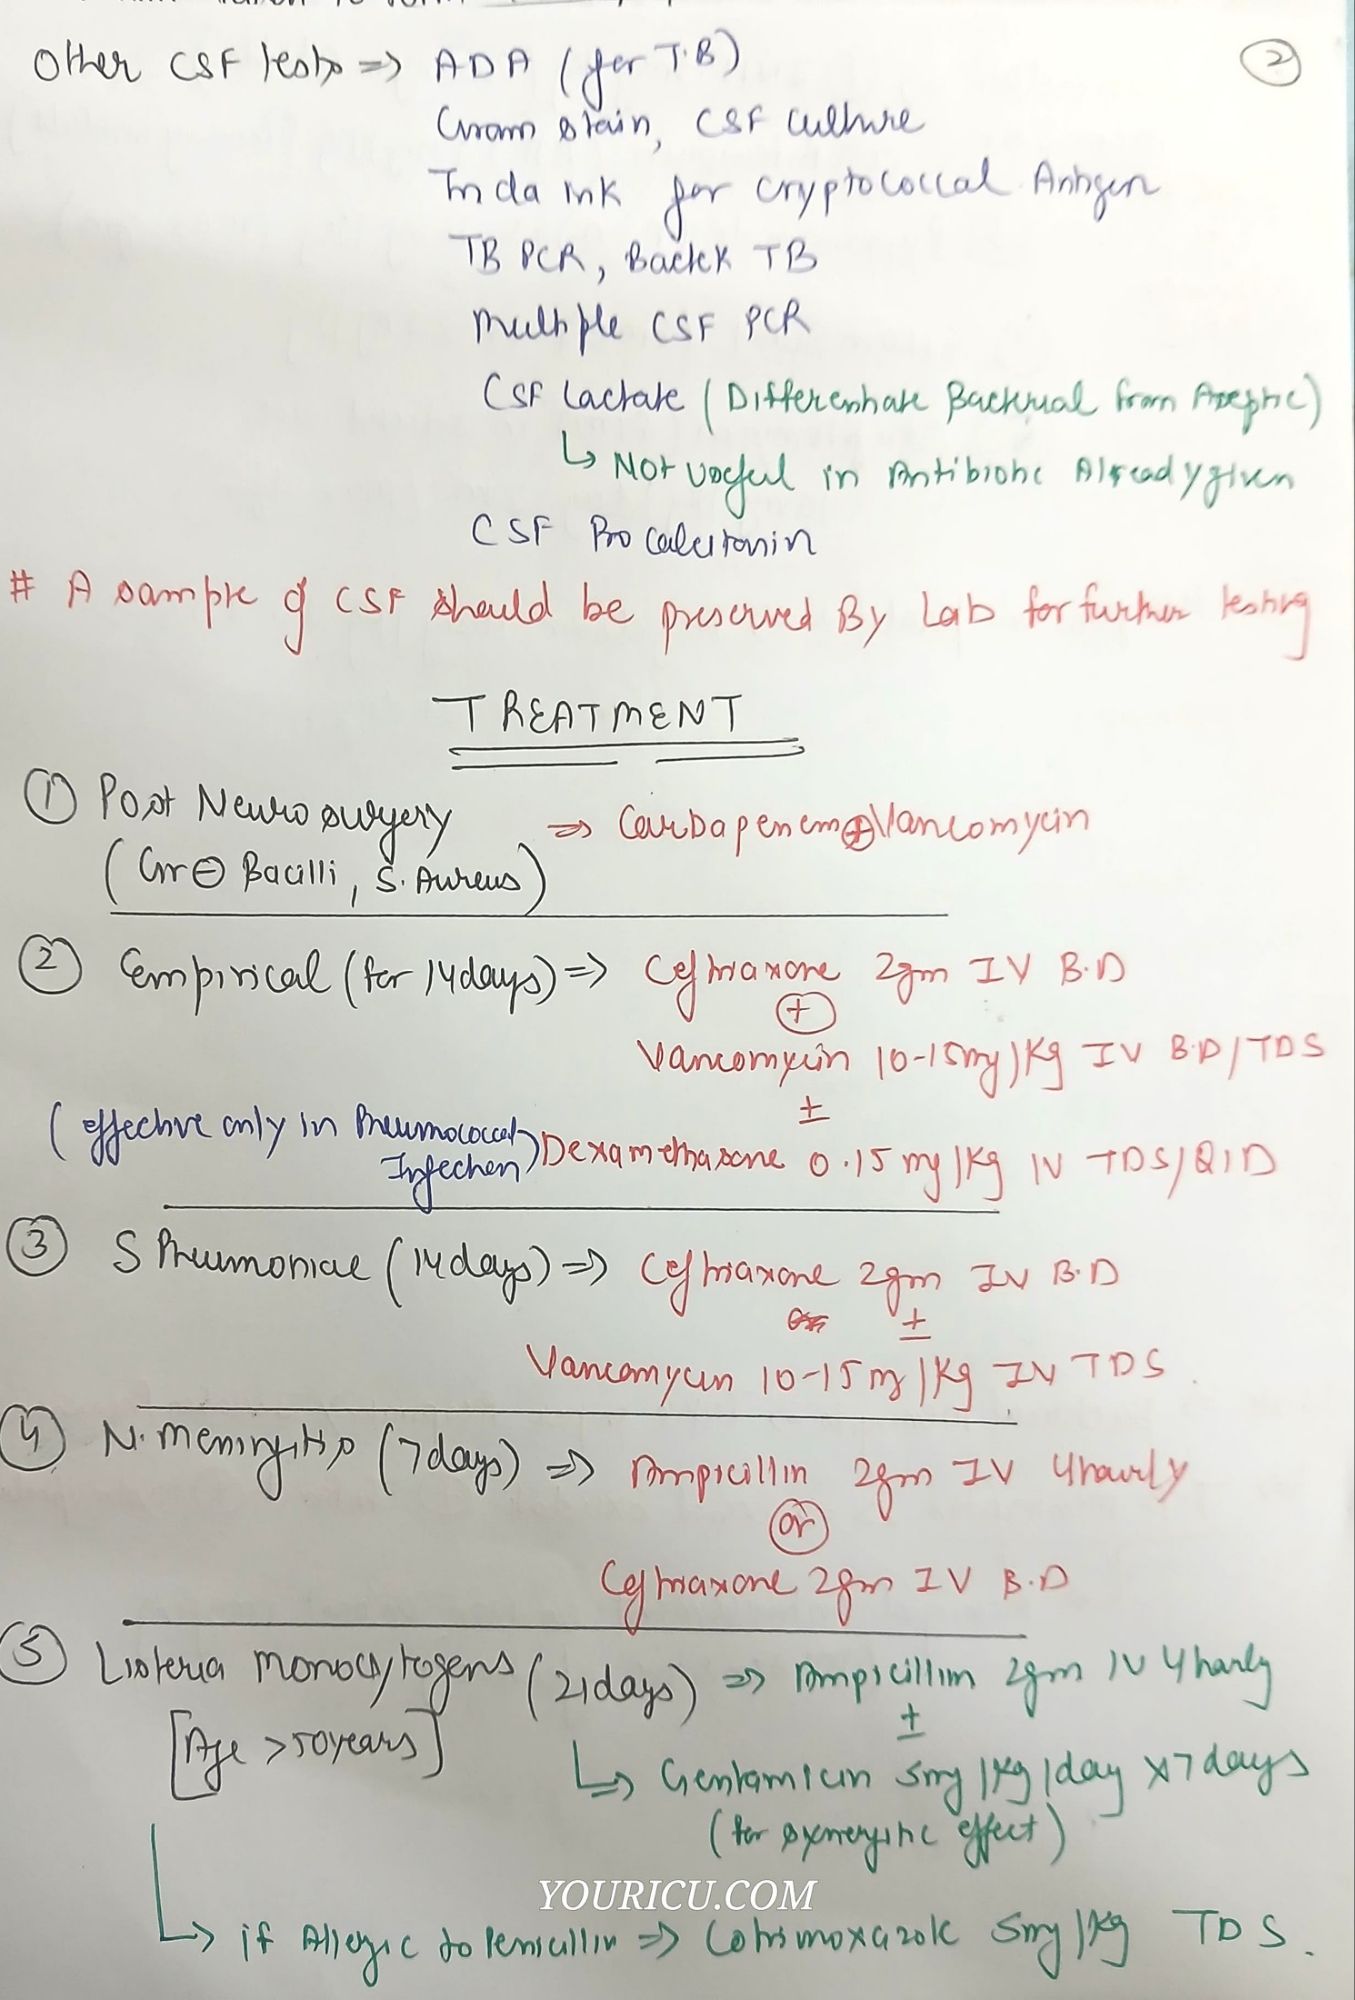 Other CSF tests => ADA (for T.B)
②
Gram stain, CSF culture
Inda ink for cryptococcal Antigen
TB PCR, BacteK TB
Multiple CSF PCR
CSF Lactate (Differentiate Bacterial from Aseptic)
↳ Not useful in Antibiotic Already given
CSF Procalcitonin
# A sample of CSF should be preserved By Lab for further testing
TREATMENT
① Post Neurosurgery => Carbapenem ⊕ Vancomycin
(Gr⊖ Bacilli, S. Aureus)
② Empirical (for 14 days) => Ceftriaxone 2gm IV B.D
⊕
Vancomycin 10-15mg/Kg IV B.D/TDS
±
(effective only in Pneumococcal Infection) Dexamethasone 0.15 mg/Kg IV TDS/QID
③ S Pneumoniae (14 days) => Ceftriaxone 2gm IV B.D
±
Vancomycin 10-15 mg/Kg IV TDS.
④ N. Meningitis (7 days) => Ampicillin 2gm IV 4hourly
or
Ceftriaxone 2gm IV B.D
⑤ Listeria monocytogens (21 days) => Ampicillin 2gm IV 4hourly
[Age >50years]
±
↳ Gentamicin 5mg/Kg/day x7days
(for synergistic effect)
YOURICU.COM
↳ if Allergic to Penicillin => Cotrimoxazole 5mg/Kg TDS.